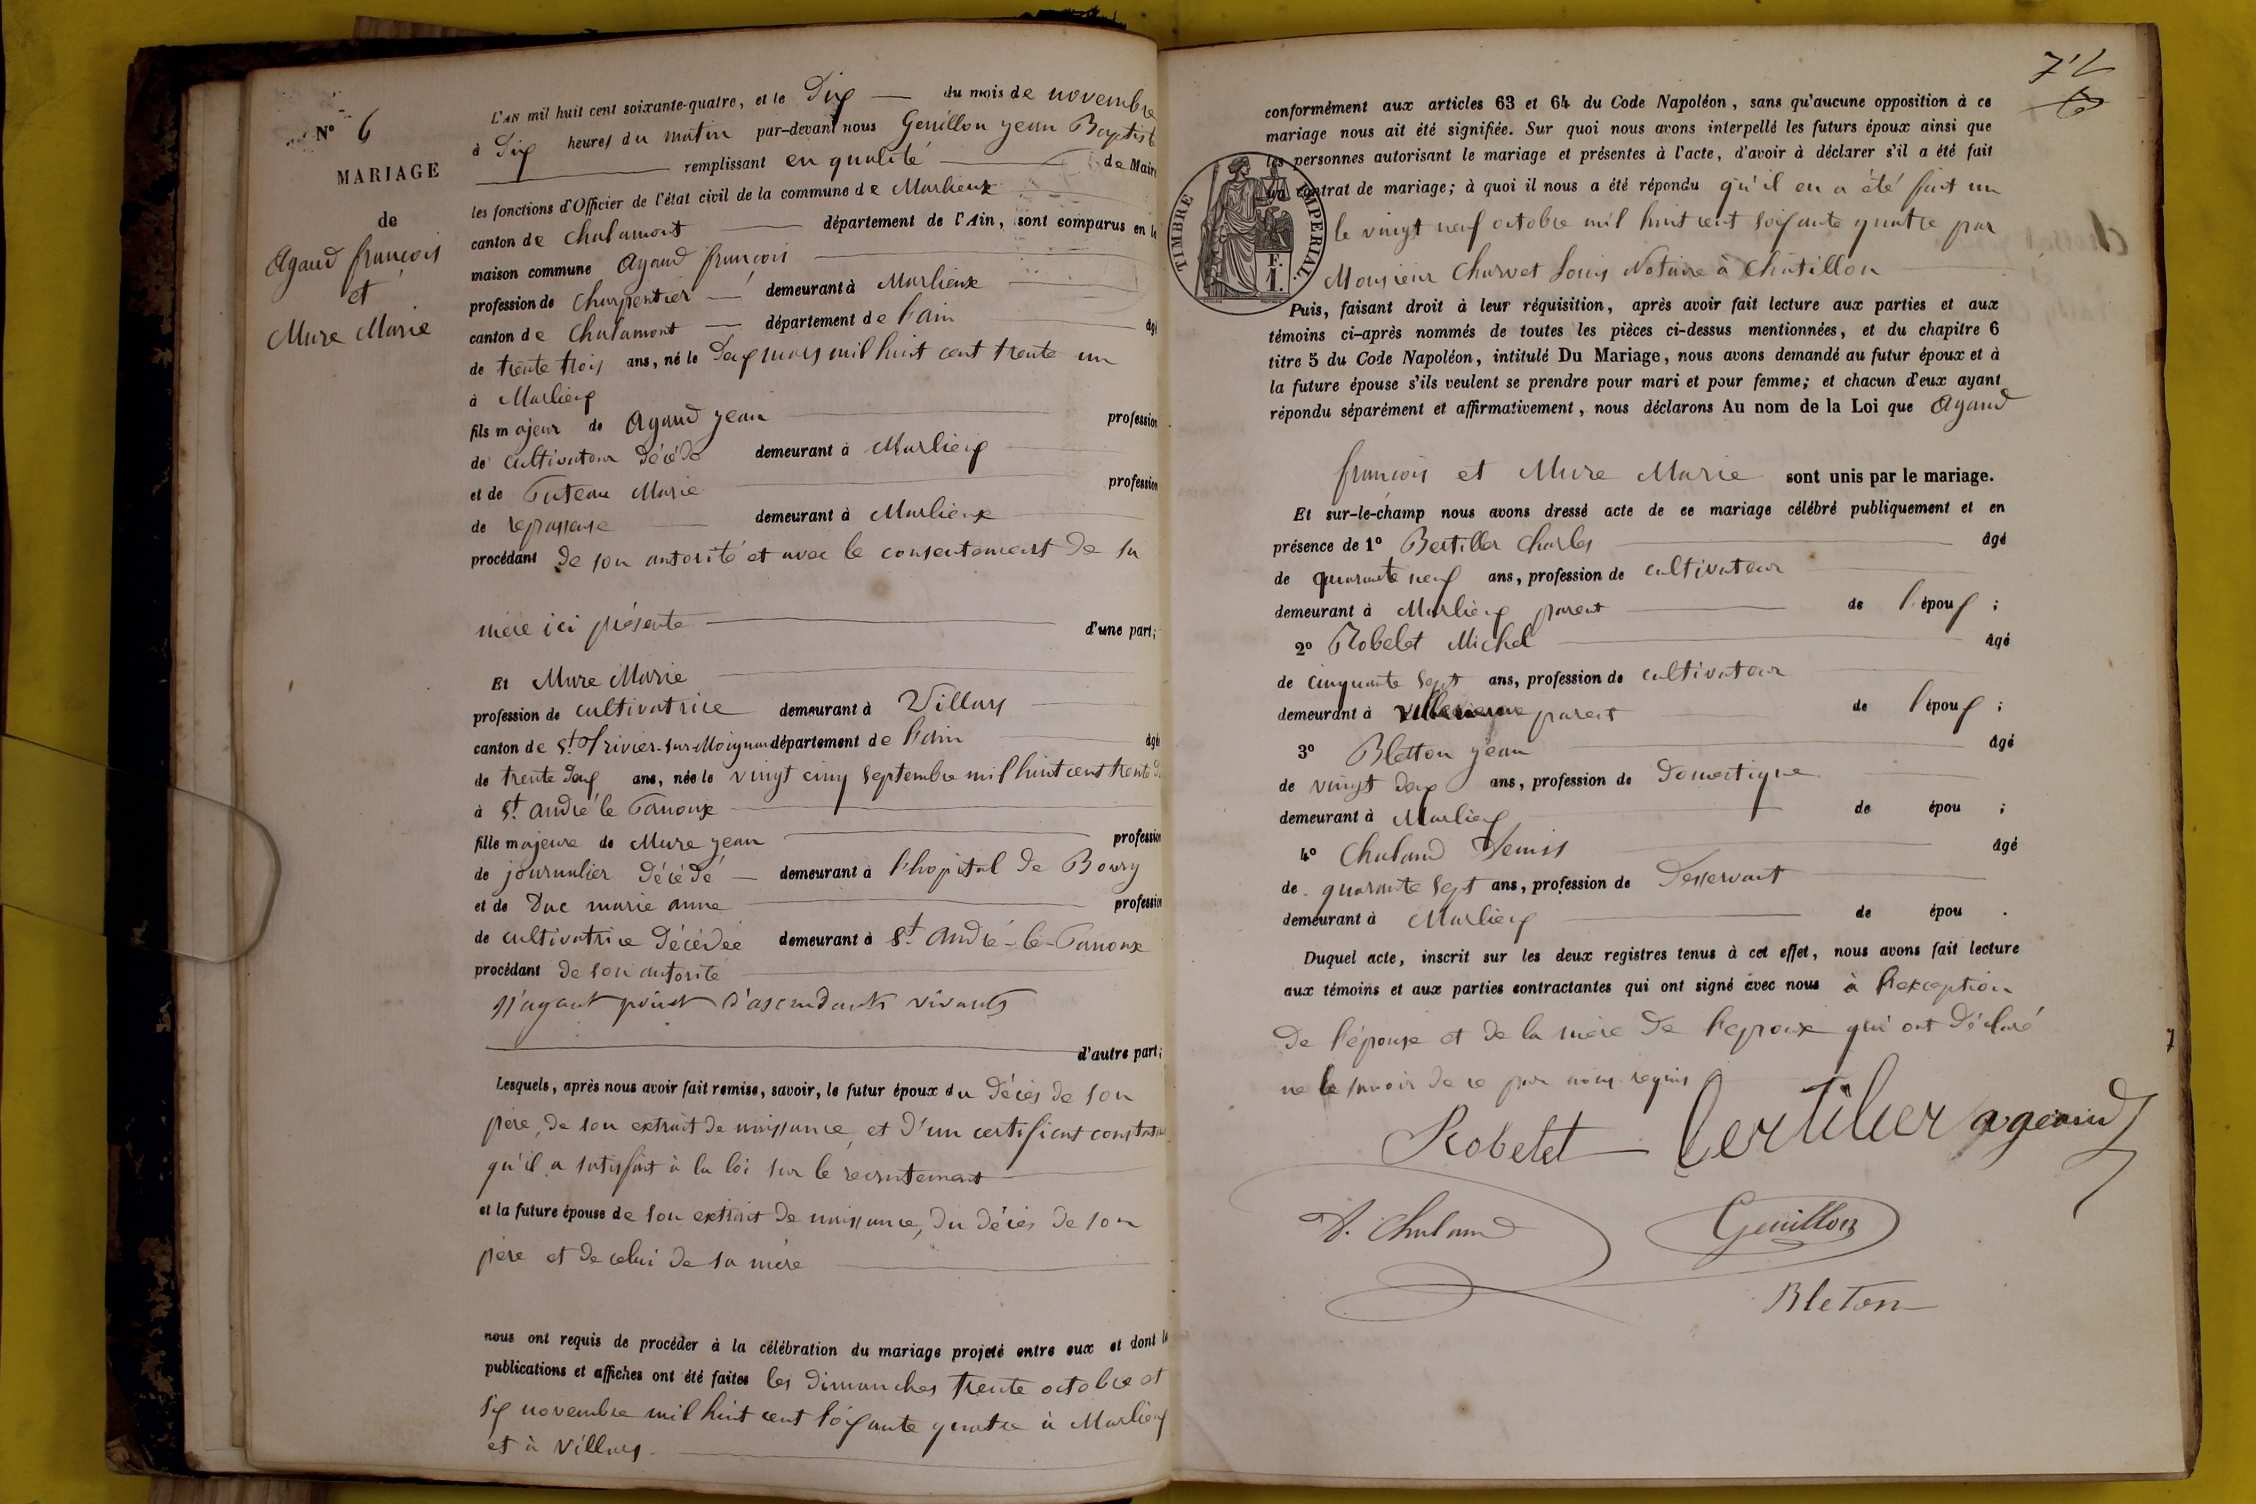 N° 6
MARIAGE
de
Agaud françois
et
Mure Marie
L'AN mil huit cent soixante-quatre, et le Dix du mois de novembre
à Dix heures du matin par-devant nous Genillon jean Baptiste
remplissant en qualité de Maire
les fonctions d'Officier de l'état civil de la commune de Marlieux
canton de Chalamont département de l'Ain, sont comparus en la
maison commune Agaud françois
profession de charpentier demeurant à Marlieux
canton de Chalamont département de l'ain âgé
de trente trois ans, né le Deux mars mil huit cent trente un
à Marlieux
fils majeur de Agaud jean profession
de cultivateur décédé demeurant à Marlieux
et de Tuteau Marie profession
de repasseuse demeurant à Marlieux
procédant de son autorité et avec le consentement de sa
mère ici présente d'une part;
Et Mure Marie
profession de cultivatrice demeurant à Villars
canton de St Trivier-sur-Moignans département de l'ain âgée
de trente deux ans, née le vingt cinq septembre mil huit cent trente
à St andré le Panoux
fille majeure de Mure jean profession
de journalier décédé demeurant à l'hopital de Bourg
et de Duc marie anne profession
de cultivatrice décédée demeurant à St André-le-Panoux
procédant de son autorité
n'ayant point d'ascendants vivants
d'autre part;
Lesquels, après nous avoir fait remise, savoir, le futur époux du décès de son
père, de son extrait de naissance, et d'un certificat constatant
qu'il a satisfait à la loi sur le recrutement
et la future épouse de son extrait de naissance, du décès de son
père et de celui de sa mère
nous ont requis de procéder à la célébration du mariage projeté entre eux et dont les
publications et affiches ont été faites les dimanches trente octobre et
six novembre mil huit cent soixante quatre à Marlieux
et à Villars
72
conformément aux articles 63 et 64 du Code Napoléon, sans qu'aucune opposition à ce
mariage nous ait été signifiée. Sur quoi nous avons interpellé les futurs époux ainsi que
les personnes autorisant le mariage et présentes à l'acte, d'avoir à déclarer s'il a été fait
un contrat de mariage; à quoi il nous a été répondu qu'il en a été fait un
TIMBRE IMPERIAL.
F.
1.
le vingt neuf octobre mil huit cent soixante quatre par
Monsieur Charvet Louis Notaire à Châtillon
Puis, faisant droit à leur réquisition, après avoir fait lecture aux parties et aux
témoins ci-après nommés de toutes les pièces ci-dessus mentionnées, et du chapitre 6
titre 5 du Code Napoléon, intitulé Du Mariage, nous avons demandé au futur époux et à
la future épouse s'ils veulent se prendre pour mari et pour femme; et chacun d'eux ayant
répondu séparément et affirmativement, nous déclarons Au nom de la Loi que Agaud
françois et Mure Marie sont unis par le mariage.
Et sur-le-champ nous avons dressé acte de ce mariage célébré publiquement et en
présence de 1° Bertiller Charles âgé
de quarante neuf ans, profession de cultivateur
demeurant à Marlieux parent de l'époux ;
2° Robelet Michel âgé
de cinquante sept ans, profession de cultivateur
demeurant à parent de l'époux ;
3° Bletton jean âgé
de vingt deux ans, profession de Domestique
demeurant à Marlieux de épou ;
4° Chaland Denis âgé
de quarante sept ans, profession de Desservant
demeurant à Marlieux de épou .
Duquel acte, inscrit sur les deux registres tenus à cet effet, nous avons fait lecture
aux témoins et aux parties contractantes qui ont signé avec nous à l'exception
de l'épouse et de la mère de l'epoux qui ont déclaré
ne le savoir de ce par nous requis
Robelet Bertiller ageaud
D. Chaland Genillon
Bleton